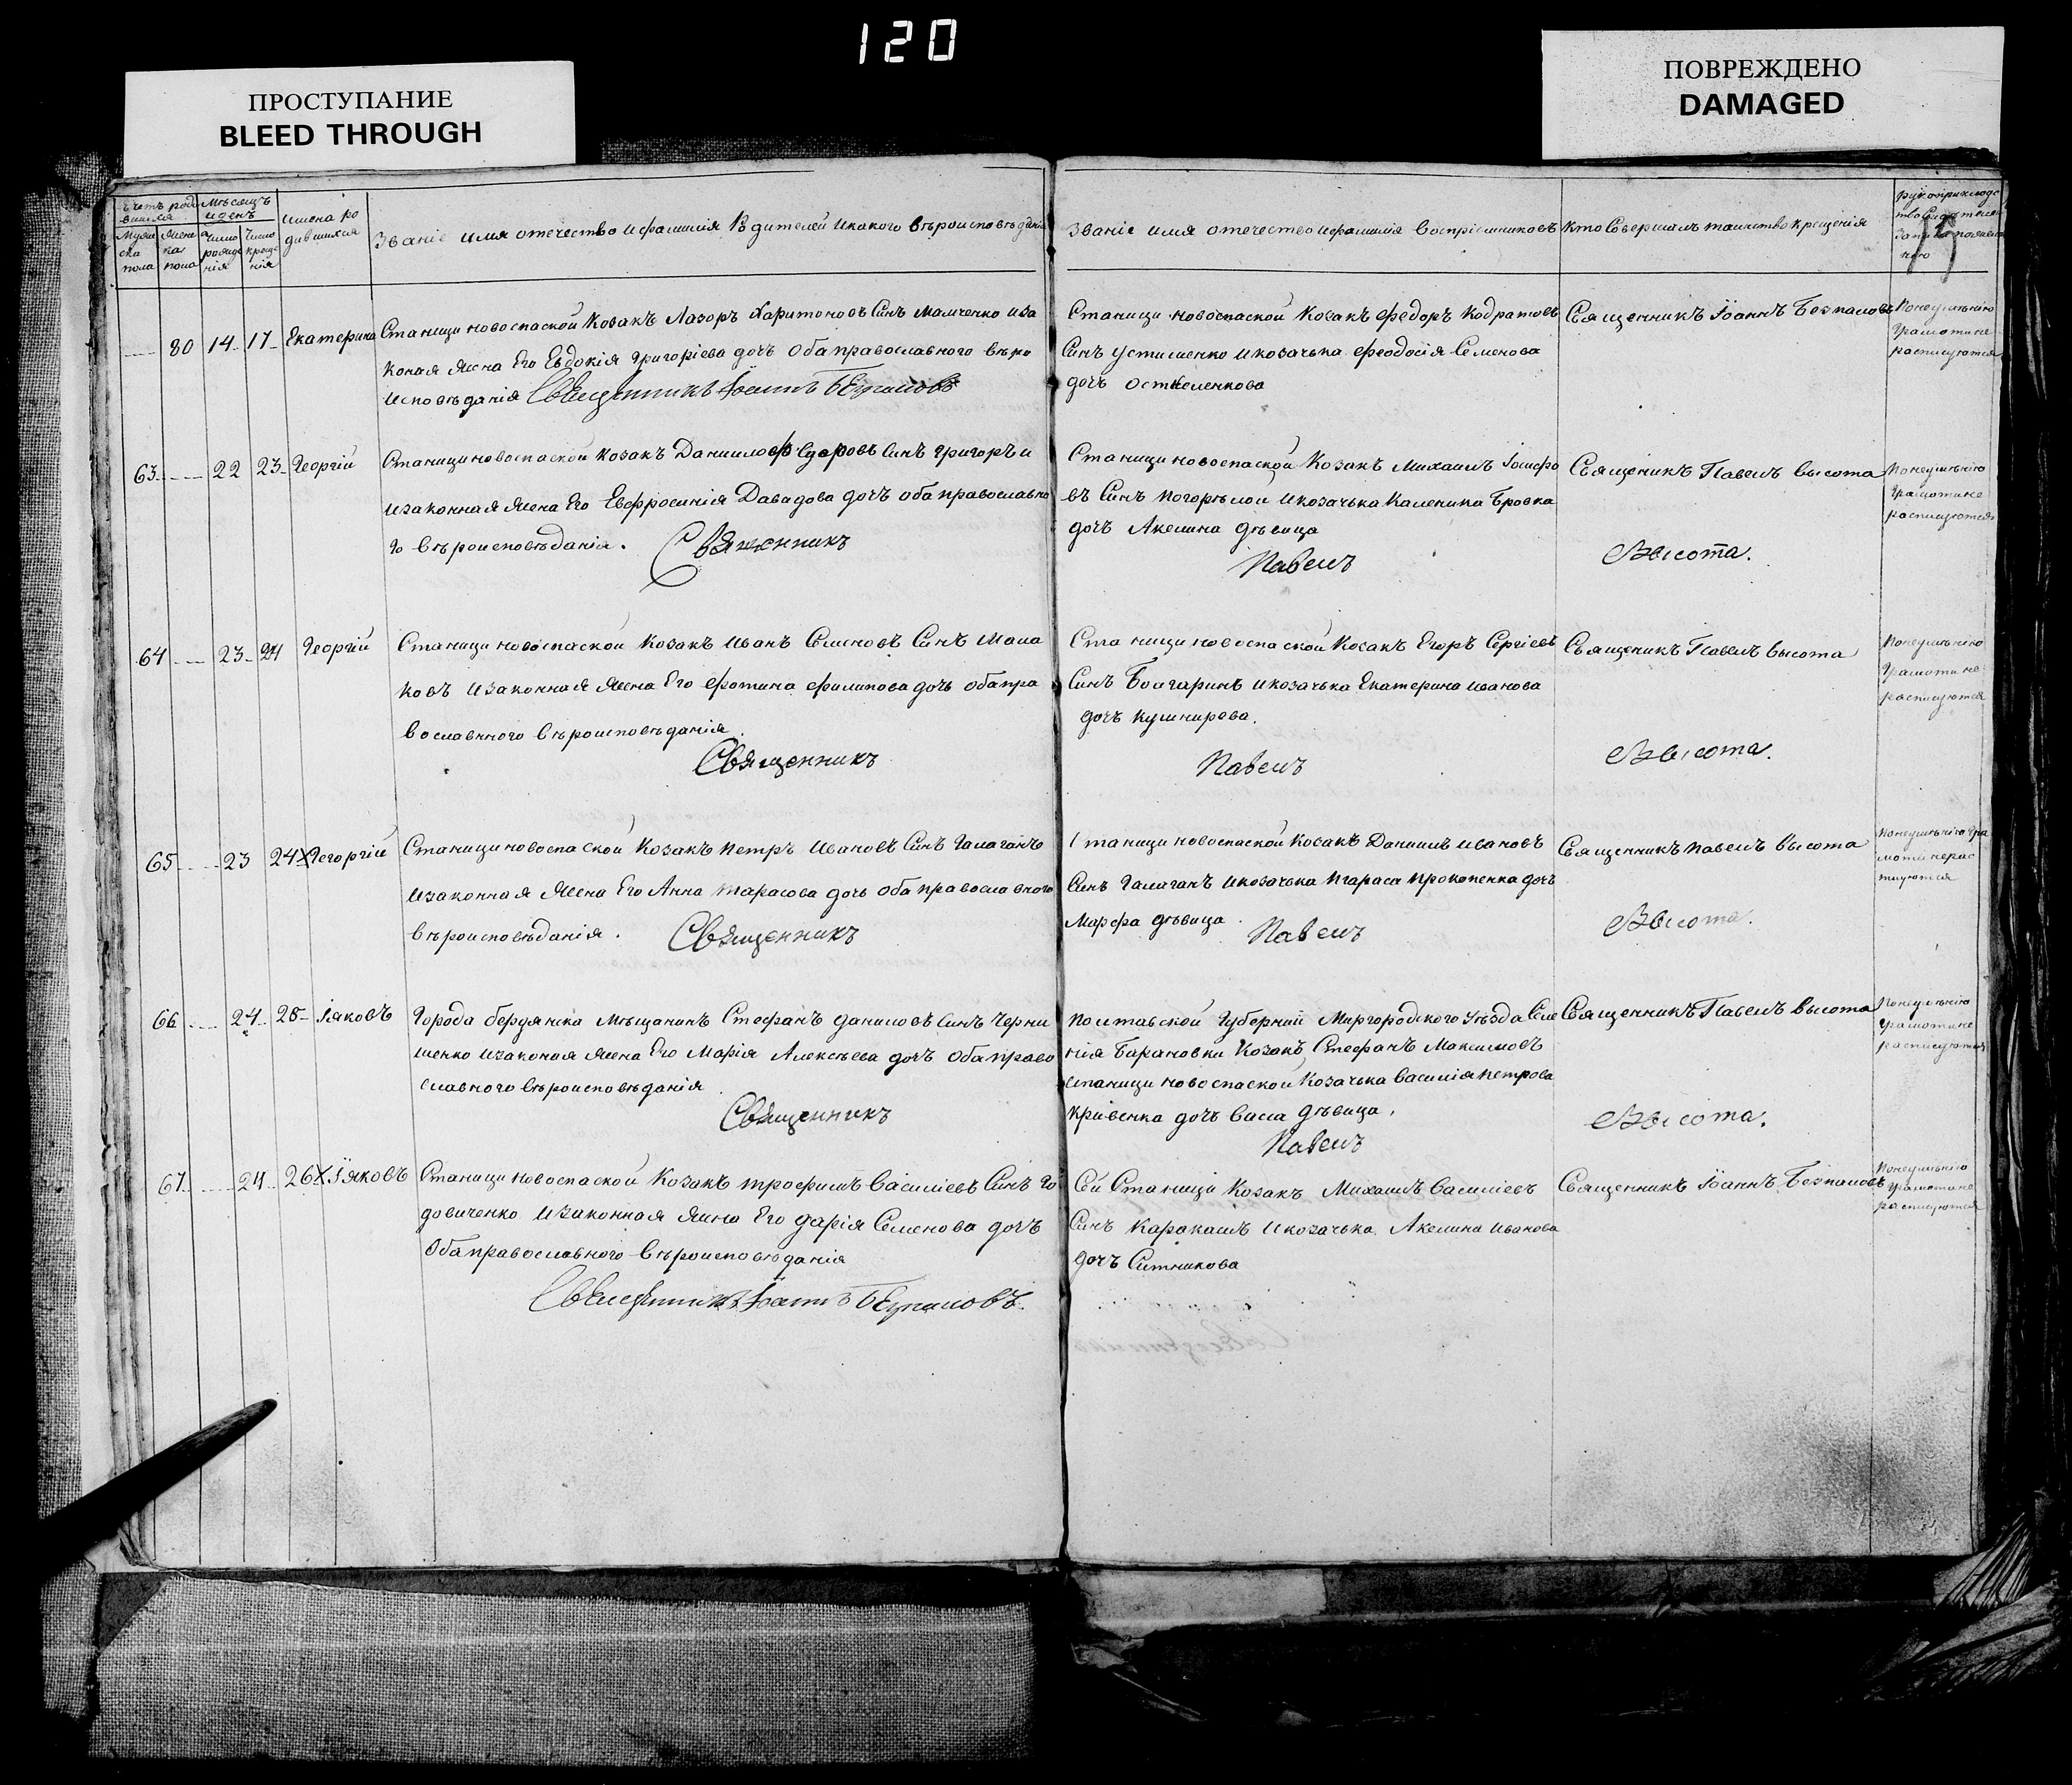 120
ПРОСТУПАНИЕ
BLEED THROUGH
ПОВРЕЖДЕНО
DAMAGED
Мѣсяцъ
и день
имена ро
дившихся
Званіе имя отечество и фамилія Родителей и какого вѣроисповѣданія
Муже
ска
пола
Жене
ка
пола
Число
рожде
нія
Число
креще
нія
Званіе имя отечество и фамилія воспріемниковъ
Кто совершалъ таинство крещенія
80 14 17 Екатерина
Станици новоспаской Козакъ Лазоръ Харитоновъ Синъ Мамченко иза
коная жена Его Евдокія Григоріева дочъ оба православного вѣро
исповѣданія Священникъ Іоаннъ Безпаловъ
Станици новоспаской Козакъ Федоръ Кодратовъ
Синъ Устименко и козачька Феодосія Семенова
дочъ
Священникъ Іоаннъ Безпаловъ
Понеуменію
Грамоти не
росписуются
63 22 23 Георгій
Станици новоспаской Козакъ Даниил Синъ Григоръ и
изаконная жена Его Евфросинія Давидова дочъ оба православно
го вѣроисповѣданія. Священникъ
Станици новоспаской Козакъ Михаилъ Іосифо
въ Синъ Погорѣлой и козачька Каленика Бровка
дочъ Акелина дѣвица
Павелъ
Священикъ Павелъ Высота
Высота.
Понеуменію
Грамоти не
росписуются
64 23 24 Георгій
Станици новоспаской Козакъ Иванъ Семеновъ Синъ Мала
ховъ изаконная жена Его Фотина Филипова дочъ оба пра
вославного вѣроисповѣданія.
Священникъ
Станици новоспаской Козакъ Егоръ Сергіевъ
Синъ Болгаринъ и козачька Екатерина Иванова
дочъ Кушнирова.
Павелъ
Священикъ Павелъ Высота
Высота.
Понеуменію
Грамоти не
росписуются
65 23 24 Х Георгій
Станици новоспаской Козакъ Петръ Ивановъ Синъ Галаганъ
изаконная жена Его Анна Тарасова дочъ оба православного
вѣроисповѣданія. Священникъ
Станици новоспаской Козакъ Даниилъ Ивановъ
Синъ Галаганъ и козачька Прокопенка дочъ
Марфа дѣвица.
Павелъ
Священникъ Павелъ Высота
Высота.
Понеуменію Гра
моти не рос
писуются
66 24 28 Іяковъ
Города Бердянска Мѣщанинъ Стефанъ Даниловъ Синъ Черни
шенко изаконая жена Его Марія Алексѣева дочъ оба право
славного вѣроисповѣданія.
Священникъ
Полтавской Губерніи Миргородского Уѣзда Селе
нія Барановки Козакъ Стефанъ Максимовъ
Станици новоспаской Козачька Василія Петрова
Кривенка дочъ Васса дѣвица.
Павелъ
Священникъ Павелъ Высота
Высота.
Понеуменію
Грамоти не
росписуются
67 24 26 Х Іяковъ
Станици новоспаской Козакъ Трофимъ Василіевъ Синъ Го
довиченко изаконная жена Его Дарія Семенова дочъ
оба православного вѣроисповѣданія
Священникъ Іоаннъ Безпаловъ.
Сей Станици Козакъ Михаилъ Василіевъ
Синъ Каракашъ и козачька Акелина Иванова
дочъ Ситникова
Священникъ Іоаннъ Безпаловъ
Понеуменію
Грамоти не
росписуются